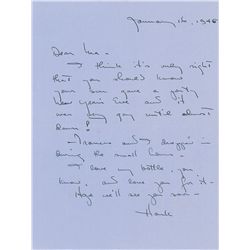 January 16, 1948
Dear Ina -
I think it's only right
that you should know
your son gave a party
New Years Eve and it
was very gay until almost
dawn!
Frances and I dropped in
during the small hours -
I love my bottle, you
know, and love you for it -
Hope we'll see you soon -
Hank